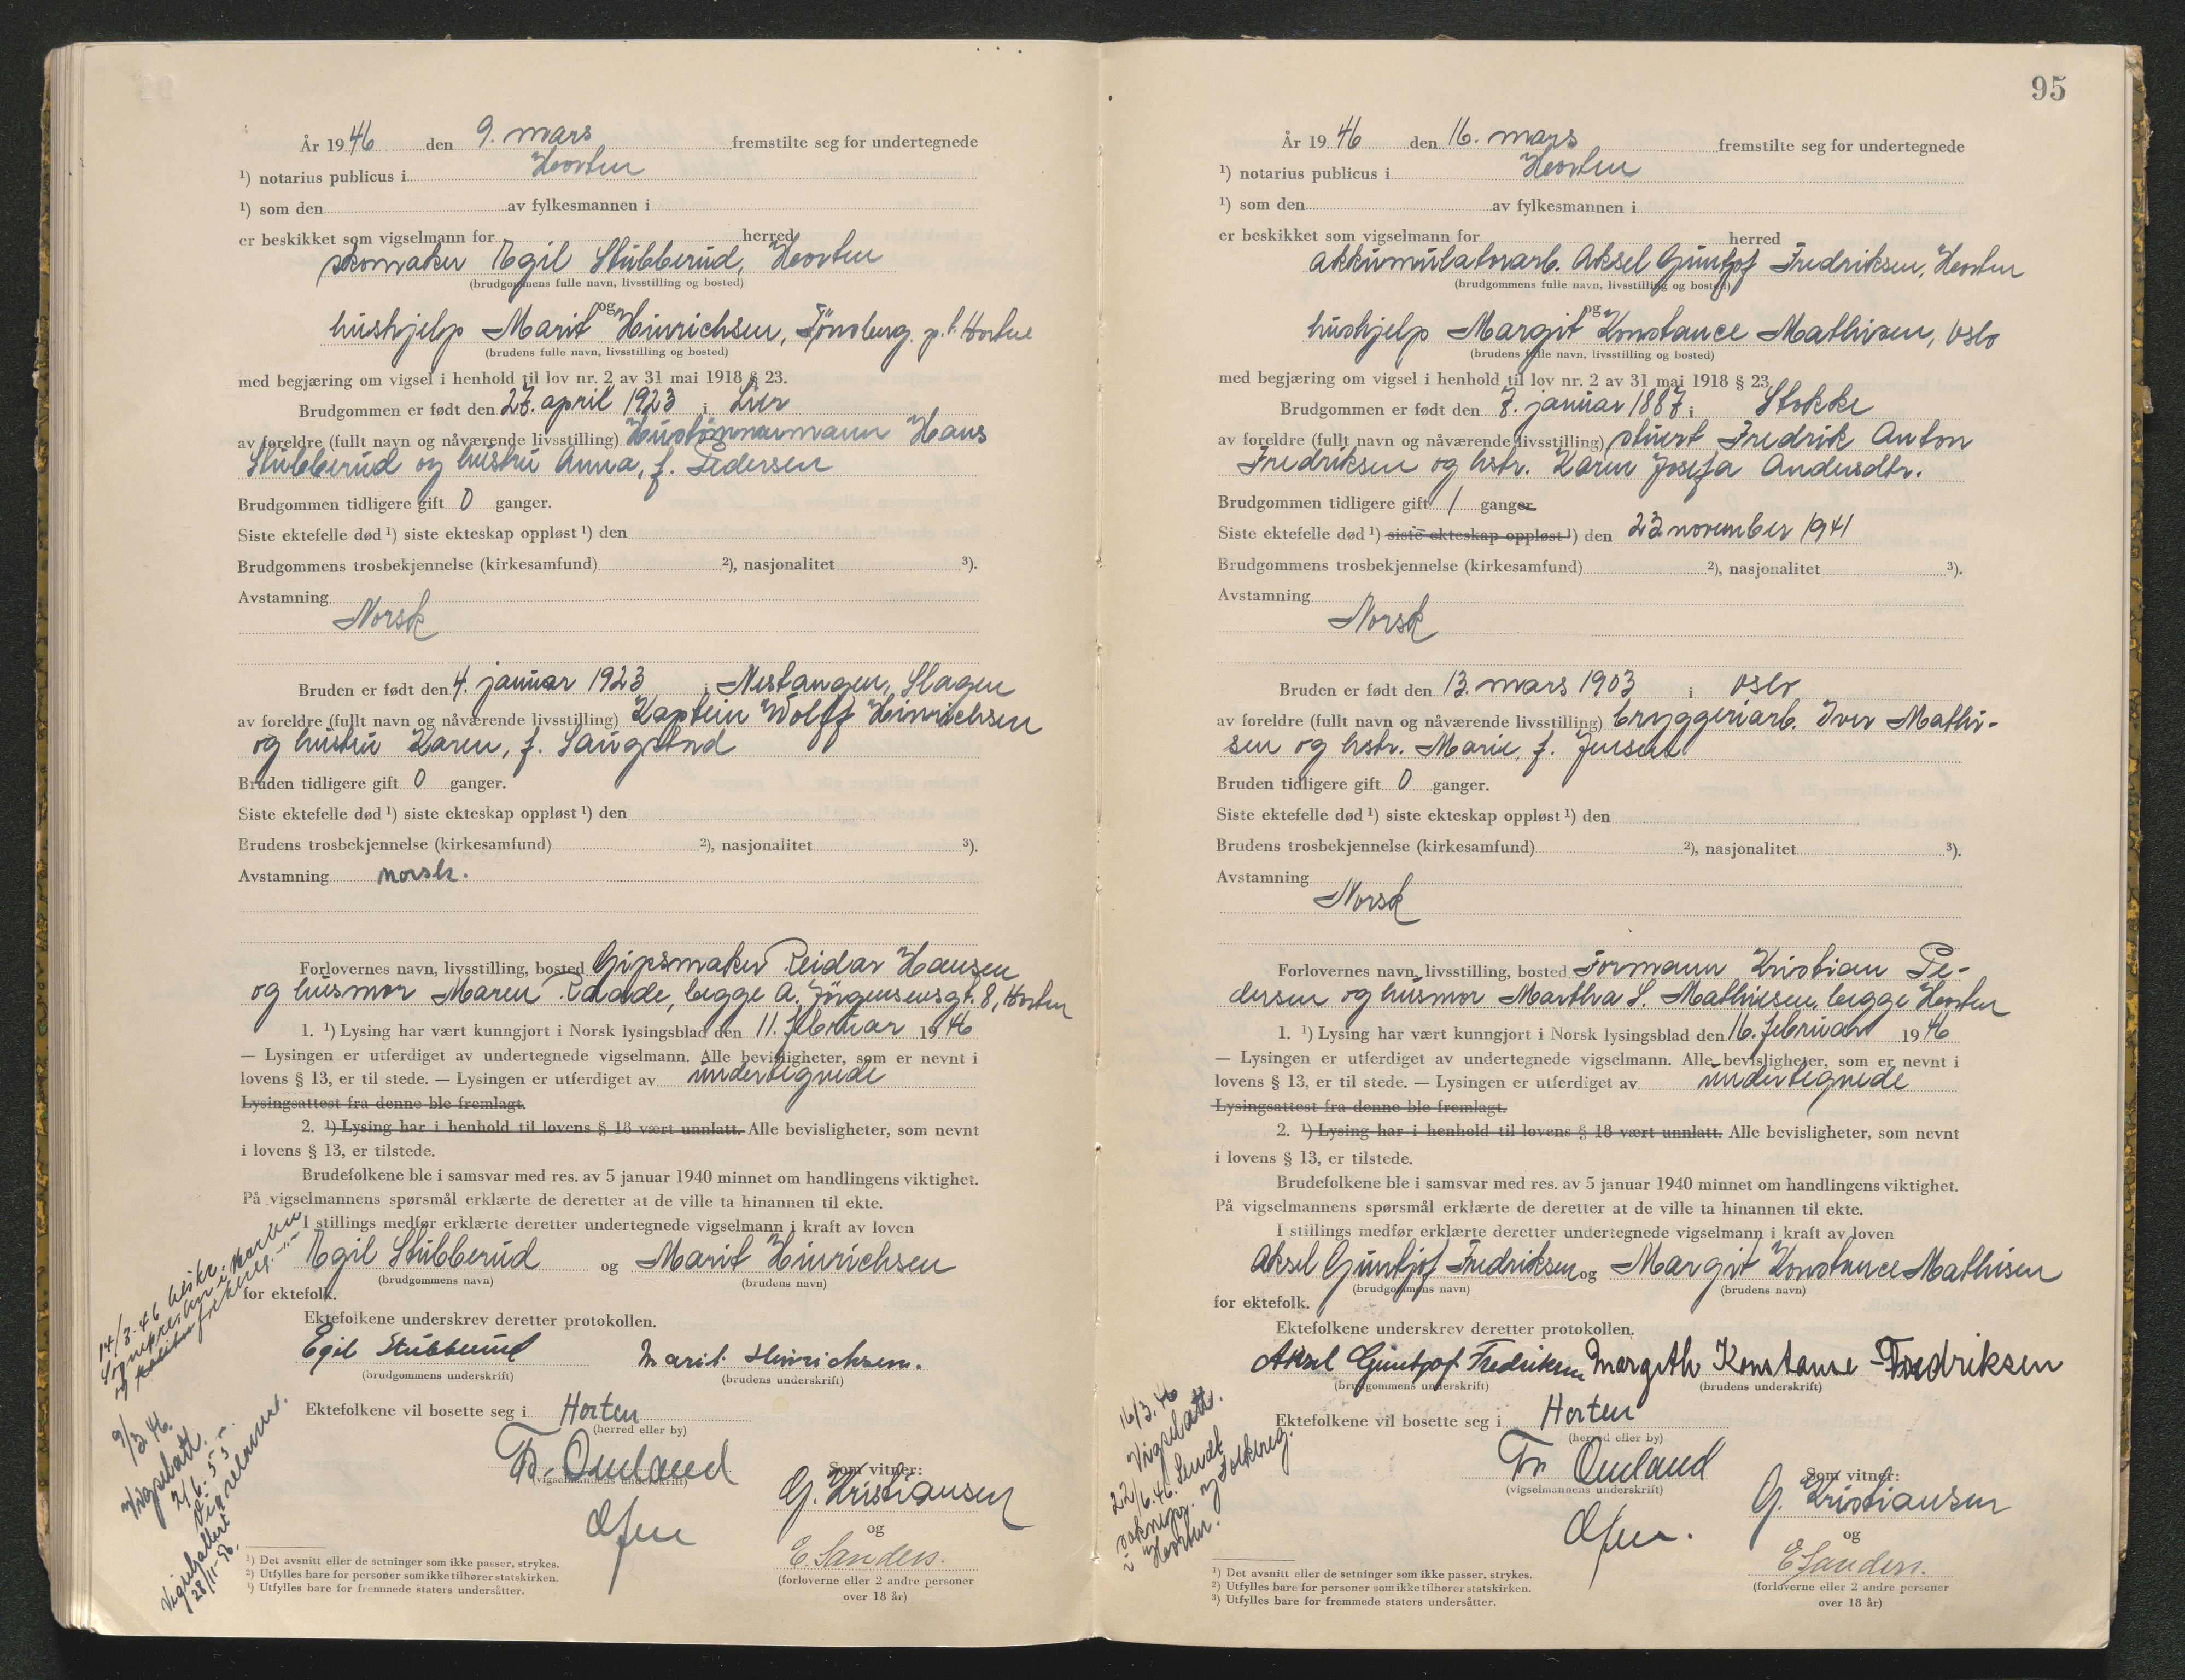 År 1946 den 9. mars fremstilte seg for undertegnede
¹) notarius publicus i Horten
¹) som den av fylkesmannen i
er beskikket som vigselmann for herred
skomaker Egil Stubberud, Horten
(brudgommens fulle navn, livsstilling og bosted)
og
hushjelp Marit Hinrichsen, Tønsberg p.t. Horten
(brudens fulle navn, livsstilling og bosted)
med begjæring om vigsel i henhold til lov nr. 2 av 31 mai 1918 § 23.
Brudgommen er født den 27. april 1923 i Lier
av foreldre (fullt navn og nåværende livsstilling) Hustømmermann Hans
Stubberud og hustru Anna, f. Pedersen
Brudgommen tidligere gift 0 ganger.
Siste ektefelle død ¹) siste ekteskap oppløst ¹) den
Brudgommens trosbekjennelse (kirkesamfund) ²), nasjonalitet ³).
Avstamning
Norsk
Bruden er født den 4. januar 1923 i Nestangen, Slagen
av foreldre (fullt navn og nåværende livsstilling) Kaptein Wolff Hinrichsen
og hustru Karen, f. Saugstad
Bruden tidligere gift 0 ganger.
Siste ektefelle død ¹) siste ekteskap oppløst ¹) den
Brudens trosbekjennelse (kirkesamfund) ²), nasjonalitet ³).
Avstamning norsk.
Forlovernes navn, livsstilling, bosted Gipsmaker Reidar Hansen
og husmor Maren Raade, begge A. Jørgensensgt. 8, Horten
1. ¹) Lysing har vært kunngjort i Norsk lysingsblad den 11. februar 1946
— Lysingen er utferdiget av undertegnede vigselmann. Alle bevisligheter, som er nevnt i
lovens § 13, er til stede. — Lysingen er utferdiget av undertegnede
Lysingsattest fra denne ble fremlagt.
2. ¹) Lysing har i henhold til lovens § 18 vært unnlatt. Alle bevisligheter, som nevnt
i lovens § 13, er tilstede.
Brudefolkene ble i samsvar med res. av 5 januar 1940 minnet om handlingens viktighet.
På vigselmannens spørsmål erklærte de deretter at de ville ta hinannen til ekte.
I stillings medfør erklærte deretter undertegnede vigselmann i kraft av loven
Egil Stubberud og Marit Hinrichsen
(brudgommens navn) (brudens navn)
for ektefolk.
Ektefolkene underskrev deretter protokollen.
Egil Stubberud Marit Hinrichsen.
(brudgommens underskrift) (brudens underskrift)
Ektefolkene vil bosette seg i Horten
(herred eller by)
Fr. Omland
(vigselmannens underskrift)
Som vitner:
G. Kristiansen
og
E. Sanders.
(forloverne eller 2 andre personer
over 18 år)
¹) Det avsnitt eller de setninger som ikke passer, strykes.
²) Utfylles bare for personer som ikke tilhører statskirken.
³) Utfylles bare for fremmede staters undersåtter.
14/3-46 beskr.
Sognepresten i Horten
og folkereg.
9/3 46.
Vigselatt.
2/6-53
Vigselsattest
28/11-56.
95
År 1946 den 16. mars fremstilte seg for undertegnede
¹) notarius publicus i Horten
¹) som den av fylkesmannen i
er beskikket som vigselmann for herred
akkumulatorarb. Aksel Guntjof Fredriksen, Horten
(brudgommens fulle navn, livsstilling og bosted)
og
hushjelp Margit Konstance Mathisen, Oslo
(brudens fulle navn, livsstilling og bosted)
med begjæring om vigsel i henhold til lov nr. 2 av 31 mai 1918 § 23.
Brudgommen er født den 7. januar 1887 i Stokke
av foreldre (fullt navn og nåværende livsstilling) stuert Fredrik Anton
Fredriksen og hstr. Karen Josefa Andersdtr.
Brudgommen tidligere gift 1 ganger
Siste ektefelle død ¹) siste ekteskap oppløst ¹) den 23 november 1941
Brudgommens trosbekjennelse (kirkesamfund) ²), nasjonalitet ³).
Avstamning
Norsk
Bruden er født den 13. mars 1903 i Oslo
av foreldre (fullt navn og nåværende livsstilling) bryggeriarb. Iver Mathi-
sen og hstr. Marie, f. Jensen
Bruden tidligere gift 0 ganger.
Siste ektefelle død ¹) siste ekteskap oppløst ¹) den
Brudens trosbekjennelse (kirkesamfund) ²), nasjonalitet ³).
Avstamning
Norsk
Forlovernes navn, livsstilling, bosted Formann Kristian Pe-
dersen og husmor Martha S. Mathiesen, begge Horten
1. ¹) Lysing har vært kunngjort i Norsk lysingsblad den 16. februar 1946
— Lysingen er utferdiget av undertegnede vigselmann. Alle bevisligheter, som er nevnt i
lovens § 13, er til stede. — Lysingen er utferdiget av undertegnede
Lysingsattest fra denne ble fremlagt.
2. ¹) Lysing har i henhold til lovens § 18 vært unnlatt. Alle bevisligheter, som nevnt
i lovens § 13, er tilstede.
Brudefolkene ble i samsvar med res. av 5 januar 1940 minnet om handlingens viktighet.
På vigselmannens spørsmål erklærte de deretter at de ville ta hinannen til ekte.
I stillings medfør erklærte deretter undertegnede vigselmann i kraft av loven
Aksel Guntjof Fredriksen og Margit Konstance Mathisen
(brudgommens navn) (brudens navn)
for ektefolk.
Ektefolkene underskrev deretter protokollen.
Aksel Guntjof Fredriksen Margith Konstanse Fredriksen
(brudgommens underskrift) (brudens underskrift)
Ektefolkene vil bosette seg i Horten
(herred eller by)
Fr Omland
(vigselmannens underskrift)
Som vitner:
G. Kristiansen
og
E Sanders.
(forloverne eller 2 andre personer
over 18 år)
¹) Det avsnitt eller de setninger som ikke passer, strykes.
²) Utfylles bare for personer som ikke tilhører statskirken.
³) Utfylles bare for fremmede staters undersåtter.
16/3.46
Vigselatt.
22/6.46. Sendt
sognepr. og Folkereg.
i Horten.